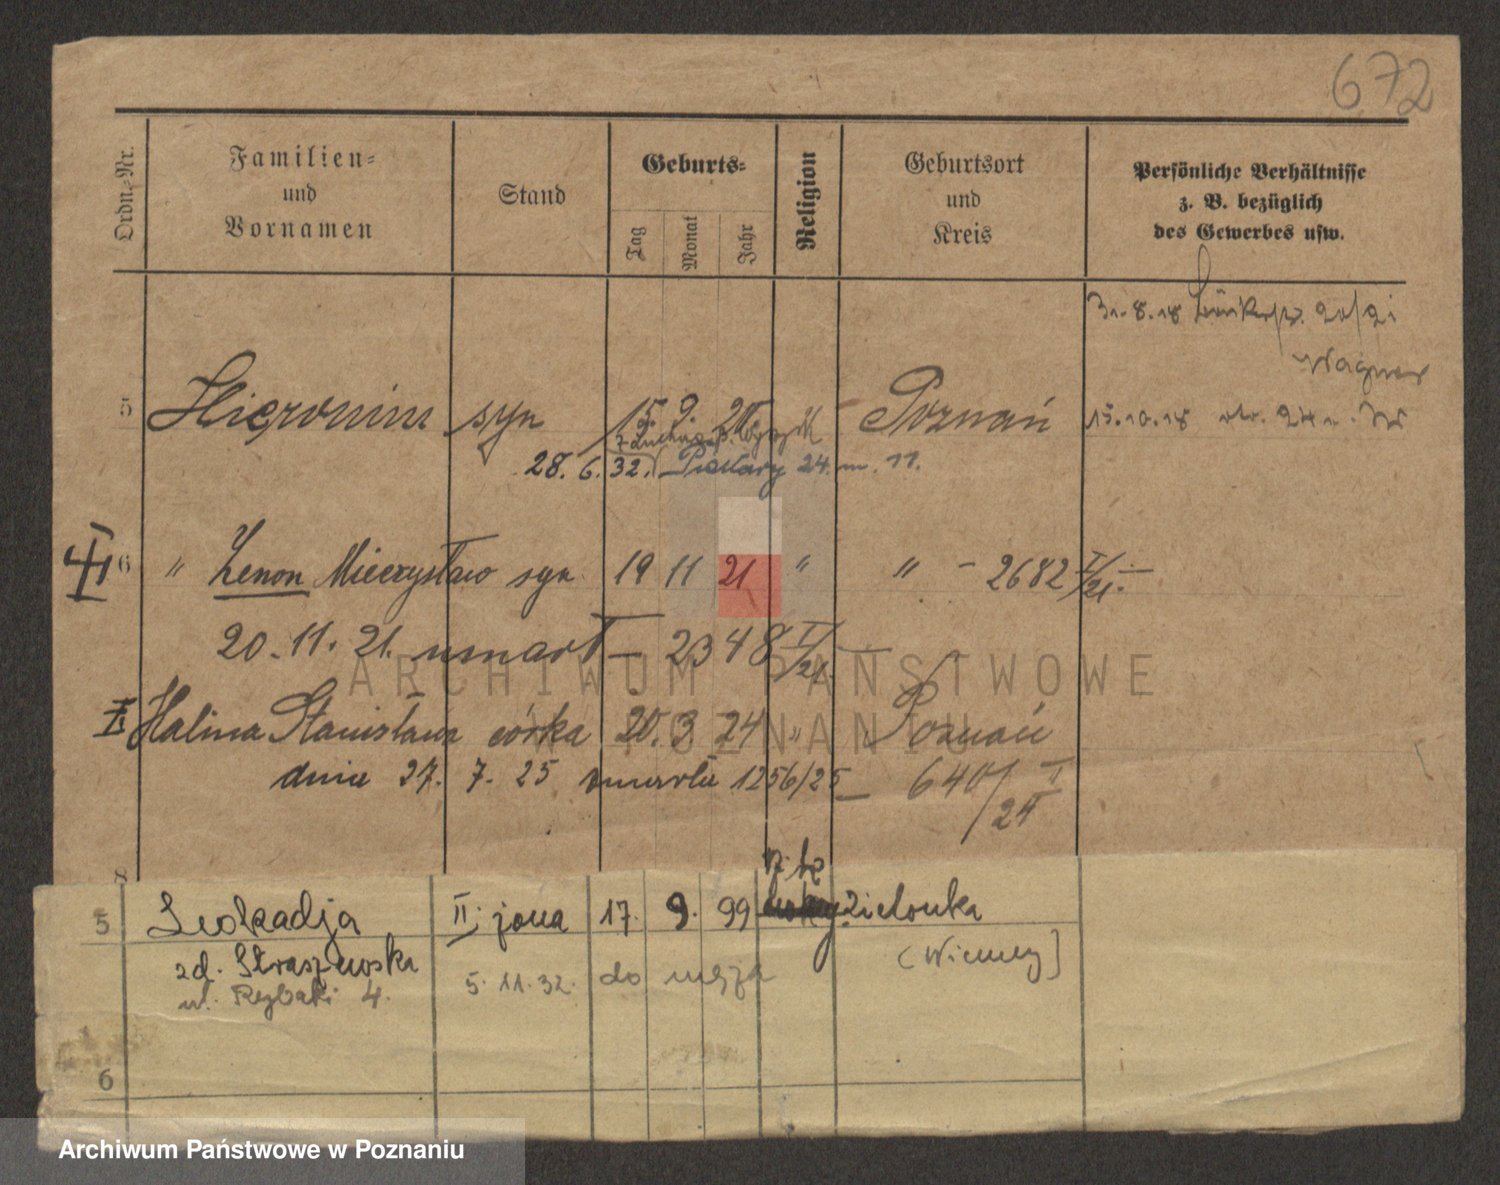 672
Ordn.-Nr.
Familien-
und
Vornamen
Stand
Geburts-
Tag
Monat
Jahr
Religion
Geburtsort
und
Kreis
Persönliche Verhältnisse
z. B. bezüglich
des Gewerbes usw.
31.8.18 20/21
Wagner
5 Hieronim syn 15. 9. 20 Poznań 15.10.18 24
28. 6. 32. Piekary 24. m. 11.
6 " Zenon Mieczysław syn 19 11 21 " " - 2682 I/21.
20. 11. 21. umarł - 2348 I/21. -
Halina Stanisława córka 20. 3 24 " Poznań
dnia 27. 7. 25 umarła 1256/25 - 640/24 II
8
5 Leokadja II. żona 17. 9. 99 rz. kt. Zielonka
zd. Straszewska (Niemcy)
ul. Rybaki 4. 5. 11. 32. do męża
6
ARCHIWUM PAŃSTWOWE
W POZNANIU
Archiwum Państwowe w Poznaniu